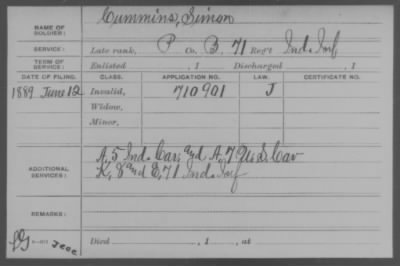 NAME OF SOLDIER: Cummins, Simon
SERVICE: Late rank, P Co. B, 71 Reg't Ind. Inf
TERM OF SERVICE: Enlisted , 1 Discharged , 1
DATE OF FILING. CLASS. APPLICATION NO. LAW. CERTIFICATE NO.
1889 June 12 Invalid, 710901 J
Widow,
Minor,
ADDITIONAL SERVICES: A, 5 Ind. Cav, and A, 7 U.S. Cav
K, 8 and E, 71 Ind. Inf
REMARKS:
Died , 1 , at